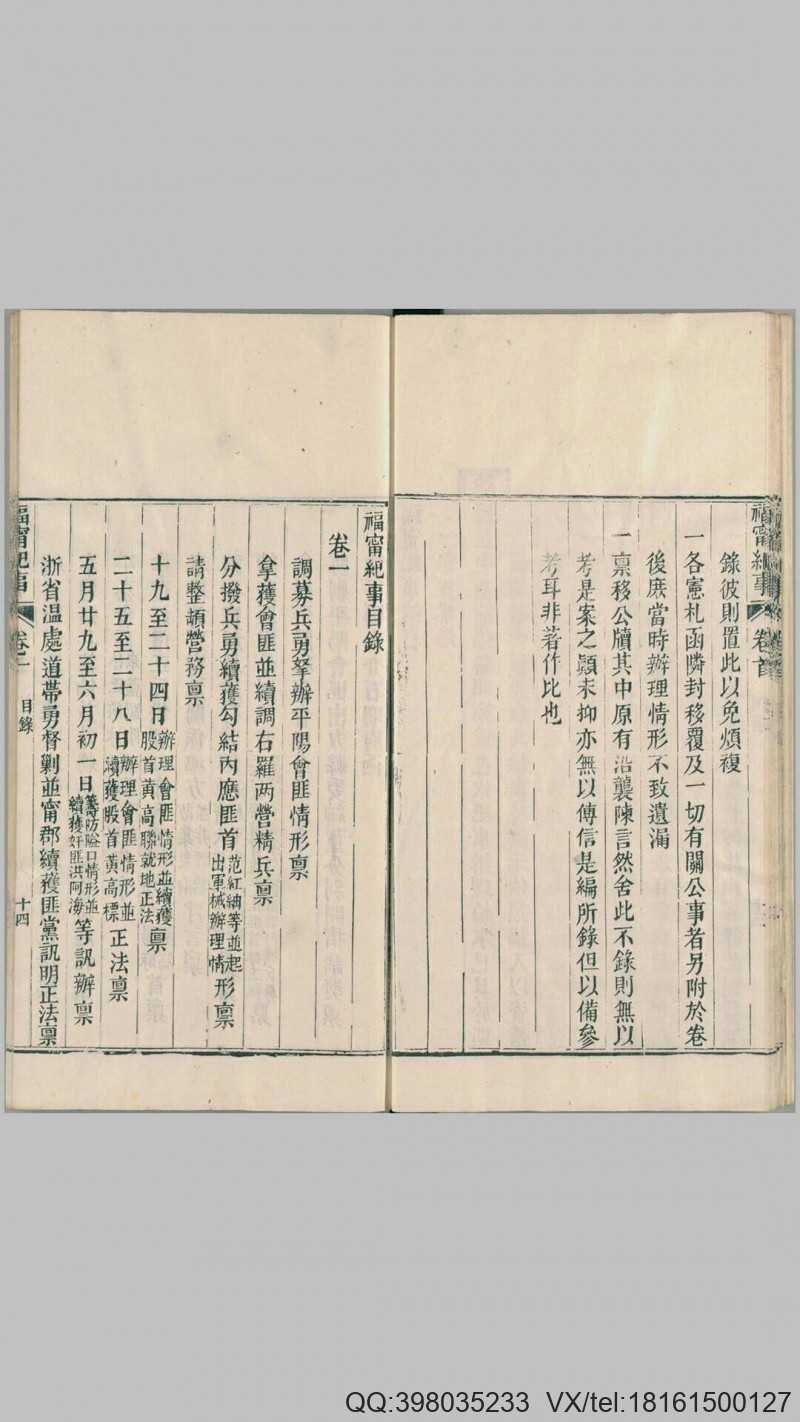 福甯紀事
卷首
錄彼則置此以免煩複
一各憲札函隣封移覆及一切有關公事者另附於卷
後庶當時辦理情形不致遺漏
一稟移公牘其中原有沿襲陳言然舍此不錄則無以
考是案之顛末抑亦無以傳信是編所錄但以備參
考耳非著作比也
福甯紀事目錄
卷一
調募兵勇拏辦平陽會匪情形稟
拿獲會匪並續調右羅两營精兵稟
分撥兵勇續獲勾結內應匪首范紅紬等並起出軍械辦理情形稟
請整頓營務稟
十九至二十四日辦理會匪情形並續獲股首黃高滕就地正法稟
二十五至二十八日辦理會匪情形並續獲股首黃高標正法稟
五月廿九至六月初一日籌防隘口情形並續獲奸匪洪阿海等訊辦稟
浙省溫處道帶勇督剿並甯郡續獲匪黨訊明正法稟
福甯紀事
卷一
目錄
十四
QQ:398035233 VX/tel:18161500127